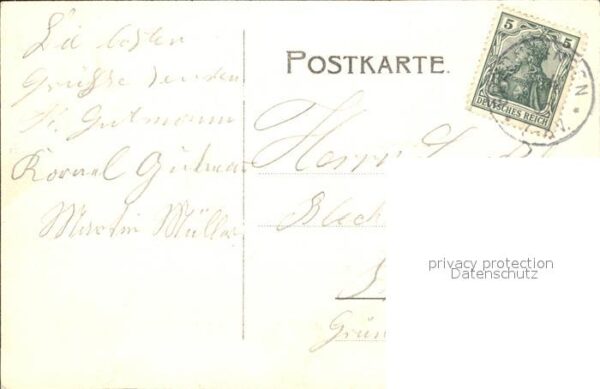 Die besten
Grüsse senden
K. Gutmann
Kornel Gutman
Martin Müller
POSTKARTE.
5 5
DEUTSCHES REICH
EN *
Herrn
Blech
Grün
privacy protection
Datenschutz